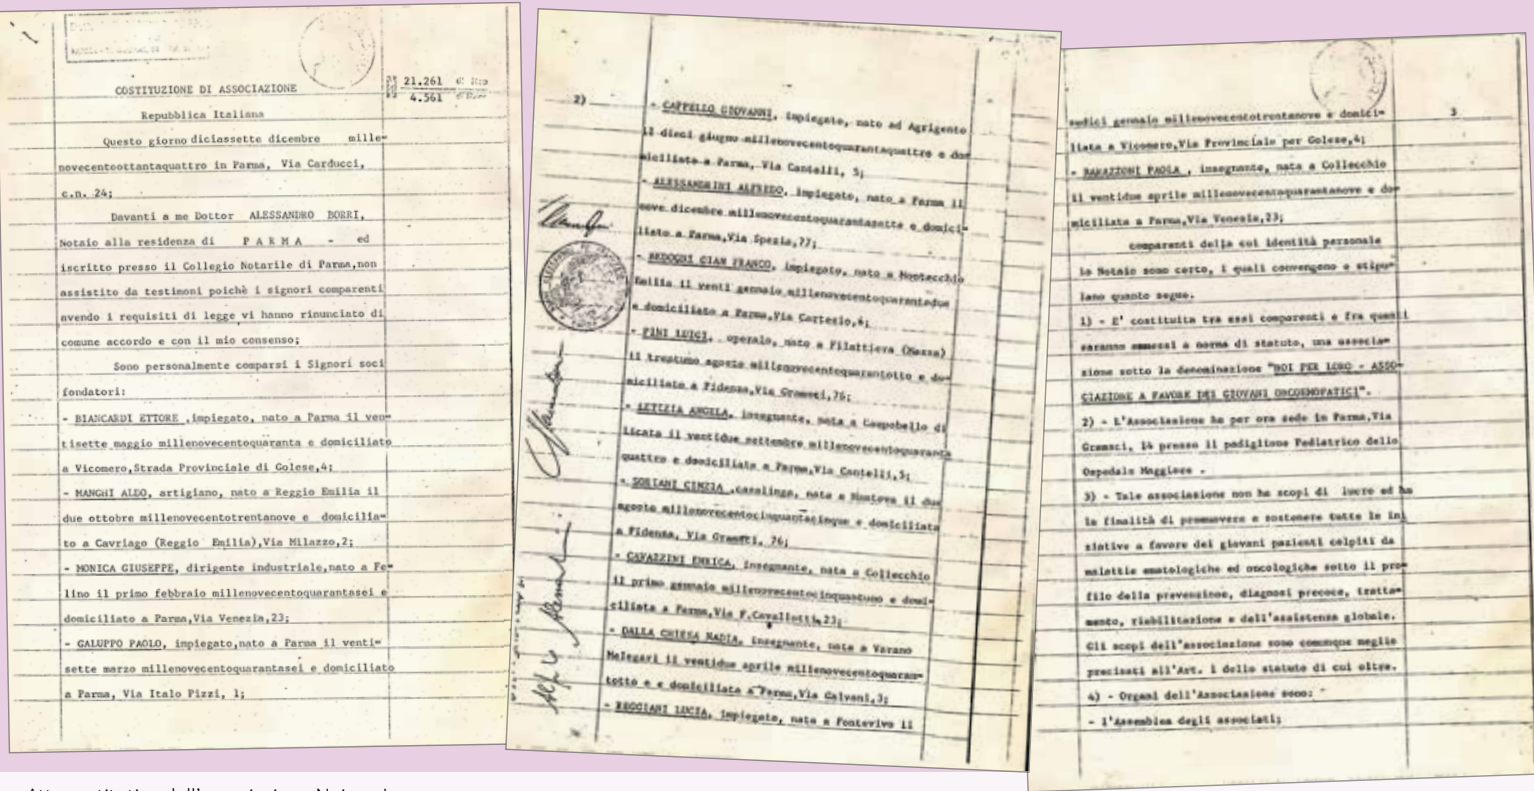 COSTITUZIONE DI ASSOCIAZIONE
21.261
4.561
Repubblica Italiana
Questo giorno diciassette dicembre mille=
novecentoottantaquattro in Parma, Via Carducci,
c.n. 24;
Davanti a me Dottor ALESSANDRO BORRI,
Notaio alla residenza di P A R M A - ed
iscritto presso il Collegio Notarile di Parma,non
assistito da testimoni poichè i signori comparenti
avendo i requisiti di legge vi hanno rinunciato di
comune accordo e con il mio consenso;
Sono personalmente comparsi i Signori soci
fondatori:
- BIANCARDI ETTORE ,impiegato, nato a Parma il ven=
tisette maggio millenovecentoquaranta e domiciliato
a Vicomero,Strada Provinciale di Golese,4;
- MANGHI ALDO, artigiano, nato a Reggio Emilia il
due ottobre millenovecentotrentanove e domicilia=
to a Cavriago (Reggio Emilia),Via Milazzo,2;
- MONICA GIUSEPPE, dirigente industriale,nato a Fe=
lino il primo febbraio millenovecentoquarantasei e
domiciliato a Parma,Via Venezia,23;
- GALUPPO PAOLO, impiegato,nato a Parma il venti=
sette marzo millenovecentoquarantasei e domiciliato
a Parma, Via Italo Pizzi, 1;
2)
- CAPPELLO GIOVANNI, impiegato, nato ad Agrigento
il dieci giugno millenovecentoquarantaquattro e do=
miciliato a Parma, Via Cantelli, 5;
- ALESSANDRINI ALFREDO, impiegato, nato a Parma il
nove dicembre millenovecentoquarantasette e domici=
liato a Parma,Via Spezia,77;
- BEDOGNI GIAN FRANCO, impiegato, nato a Montecchio
Emilia il venti gennaio millenovecentoquarantadue
e domiciliato a Parma,Via Cartesio,4;
- PINI LUIGI, operaio, nato a Filattiera (Massa)
il trentuno agosto millenovecentoquarantotto e do=
miciliato a Fidenza,Via Gramsci,76;
- LETIZIA ANGELA, insegnante, nata a Campobello di
Licata il ventidue settembre millenovecentoquaranta
quattro e domiciliata a Parma,Via Cantelli,5;
- SORIANI CINZIA ,casalinga, nata a Mantova il due
agosto millenovecentocinquantacinque e domiciliata
a Fidenza, Via Gramsci, 76;
- CAVAZZINI ENRICA, insegnante, nata a Collecchio
il primo gennaio millenovecentocinquantuno e domi=
ciliata a Parma,Via F.Cavallotti,23;
- DALLA CHIESA NADIA, insegnante, nata a Varano
Melegari il ventidue aprile millenovecentoquaran=
totto e e domiciliata a Parma,Via Galvani,3;
- REGGIANI LUCIA, impiegata, nata a Fontevivo il
3
sedici gennaio millenovecentotrentanove e domici=
liata a Vicomero,Via Provinciale per Golese,4;
- BARAZZONI PAOLA , insegnante, nata a Collecchio
il ventidue aprile millenovecentoquarantanove e do=
miciliata a Parma,Via Venezia,23;
comparenti della cui identità personale
io Notaio sono certo, i quali convengono e stipu=
lano quanto segue.
1) - E' costituita tra essi comparenti e fra quanti
saranno ammessi a norma di statuto, una associa=
zione sotto la denominazione "NOI PER LORO - ASSO=
CIAZIONE A FAVORE DEI GIOVANI ONCOEMOPATICI".
2) - L'Associazione ha per ora sede in Parma,Via
Gramsci, 14 presso il padiglione Pediatrico dello
Ospedale Maggiore .
3) - Tale associazione non ha scopi di lucro ed ha
la finalità di promuovere e sostenere tutte le ini
ziative a favore dei giovani pazienti colpiti da
malattie ematologiche ed oncologiche sotto il pro=
filo della prevenzione, diagnosi precoce, tratta=
mento, riabilitazione e dell'assistenza globale.
Gli scopi dell'associazione sono comunque meglio
precisati all'Art. 1 dello statuto di cui oltre.
4) - Organi dell'Associazione sono:
- l'Assemblea degli associati;